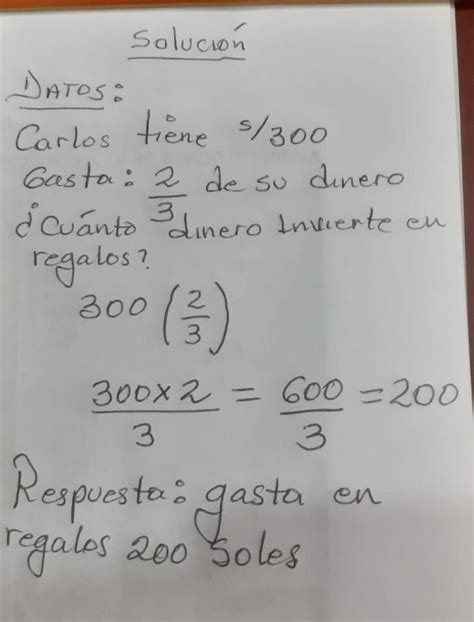 Solución
DATOS:
Carlos tiene s/300
Gasta: 2/3 de su dinero
¿Cuánto dinero Invierte en
regalos?
300 (2/3)
300x2/3 = 600/3 = 200
Respuesta: gasta en
regalos 200 Soles